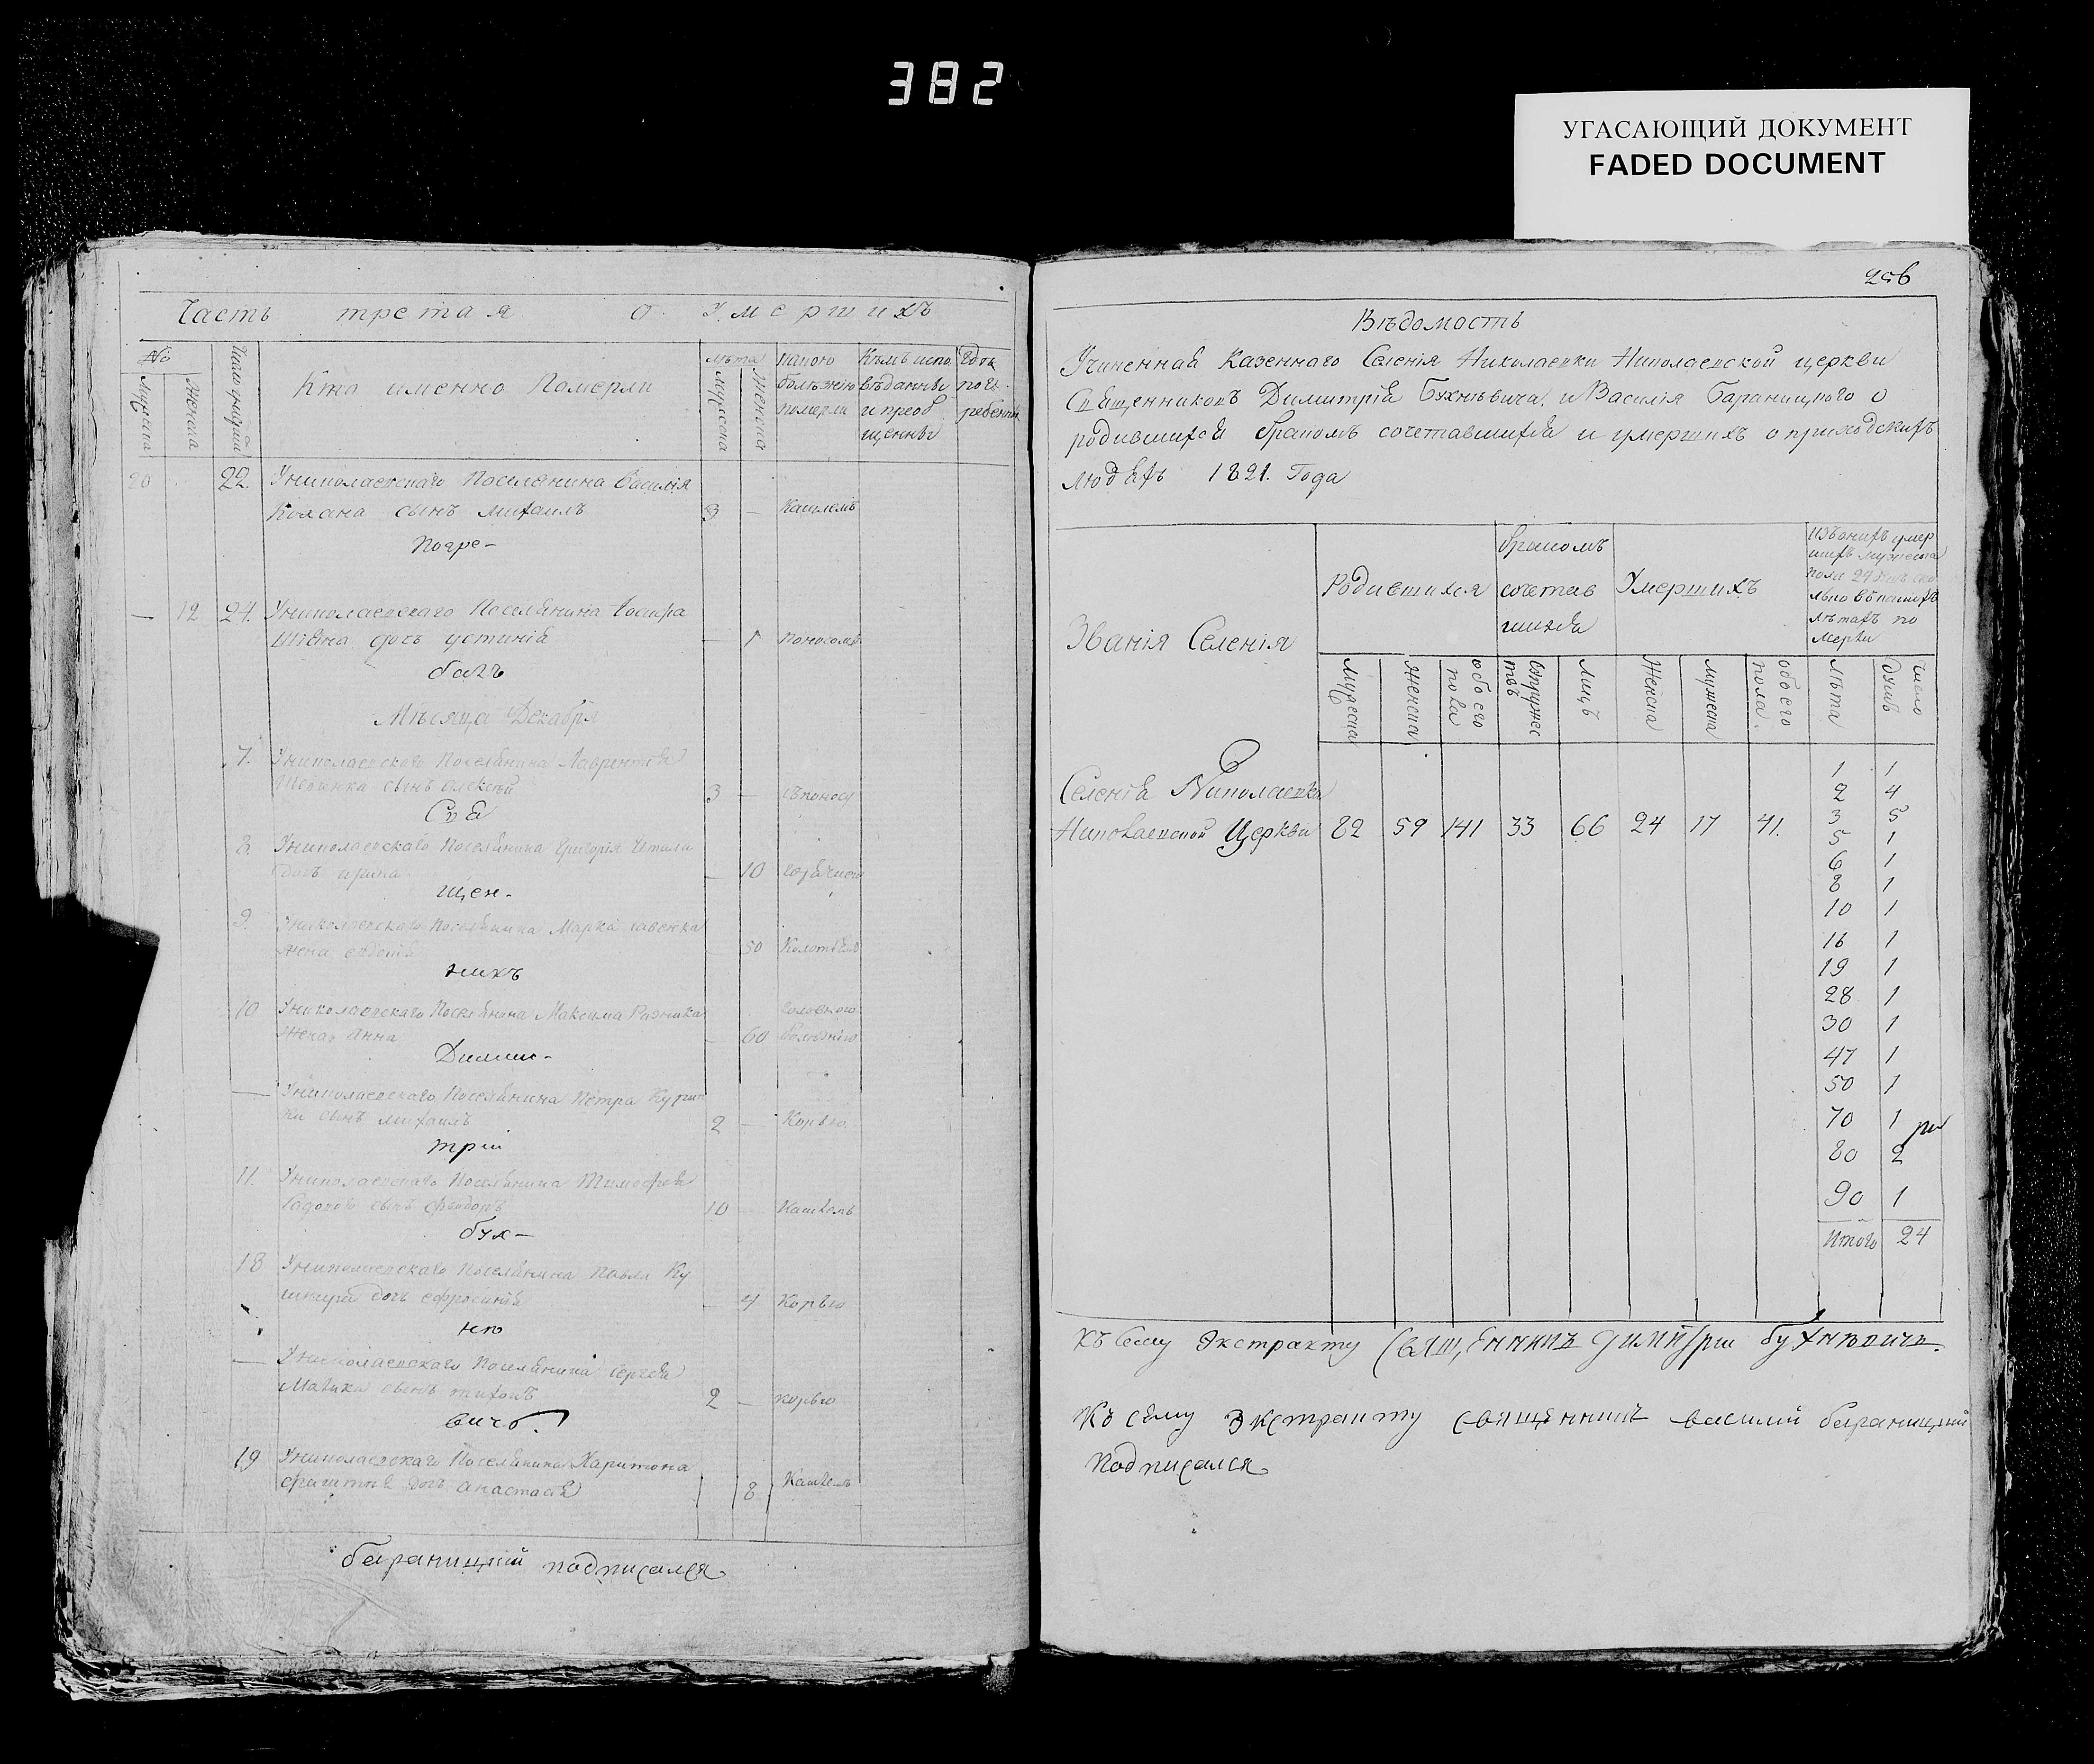 382
УГАСАЮЩИЙ ДОКУМЕНТ
FADED DOCUMENT
Часть третая о Умершихъ
№
Мужеска
Женска
Число умертвія
Кто именно Померли
лѣта
Мужеска
Женска
Какою болѣзнію померли
Кѣмъ исповѣданны и преобщенны
Гдѣ погребенны
20 22. Униколаевскаго Поселянина Василія
Кохана сынъ михаилъ 3 — Кашлемъ
Погре-
— 12 24. Униколаевскаго Поселянина
дочь устинія — 1 поносомъ
балъ
Мѣсяца Декабря
7. Униколаевскаго Поселянина Лаврентія
Шевченка сынъ алексѣй 3 — съпоносу
Свя
8. Униколаевскаго Поселянина Григорія
дочь ирина — 10
щен-
9. Униколаевскаго Поселянина Марка савенка
жена евдокія 50 Колотьемъ
никъ
10 Униколаевскаго Поселянина Максима
жена Анна — 60 головною болѣзнію
Димит-
— Униколаевскаго Поселянина Петра
сынъ михаилъ 2 — Корью
трій
11. Униколаевскаго Поселянина Тимофея
сынъ феодоръ 10 — Кашлемъ
бух-
18 Униколаевскаго Поселянина Павла Ку
шнира дочь ефросинія — 4 Корью
нѣ
— Униколаевскаго Поселянина Сергѣя
сынъ тихонъ 2 — корью
вичъ
19 Униколаевскаго Поселянина Харитона
дочь анастасія 8 Кашлемъ
бараницкій подписался
256
Вѣдомость
Учиненная Казеннаго Селенія Николаевки Николаевской церкви
Священниковъ Димитрія Бухнѣвича и Василія Бараницкого о
родившихся бракомъ сочетавшихся и умершихъ о приходскихъ
людяхъ 1821. Года
Званія Селенія
Родившихся
бракомъ сочетавшихся
Умершихъ
Изъ онихъ умер
шихъ мужеска
пола 24 душъ ско
лько въ какихъ
лѣтахъ по
мерли
Мужеска
Женска
обоего пола
супружествъ
лицъ
Женска
мужеска
обоего пола.
лѣта
число душъ
Селенія Николаевки
Николаевской Церкви 82 59 141 33 66 24 17 41.
1 1
2 4
3 5
5 1
6 1
8 1
10 1
16 1
19 1
28 1
30 1
47 1
50 1
70 1
80 2
90 1
Итого 24
Къ сему Экстракту Священникъ Димитрій бухнѣвичъ.
Къ сему Экстракту священникъ василій бараницкій
подписался